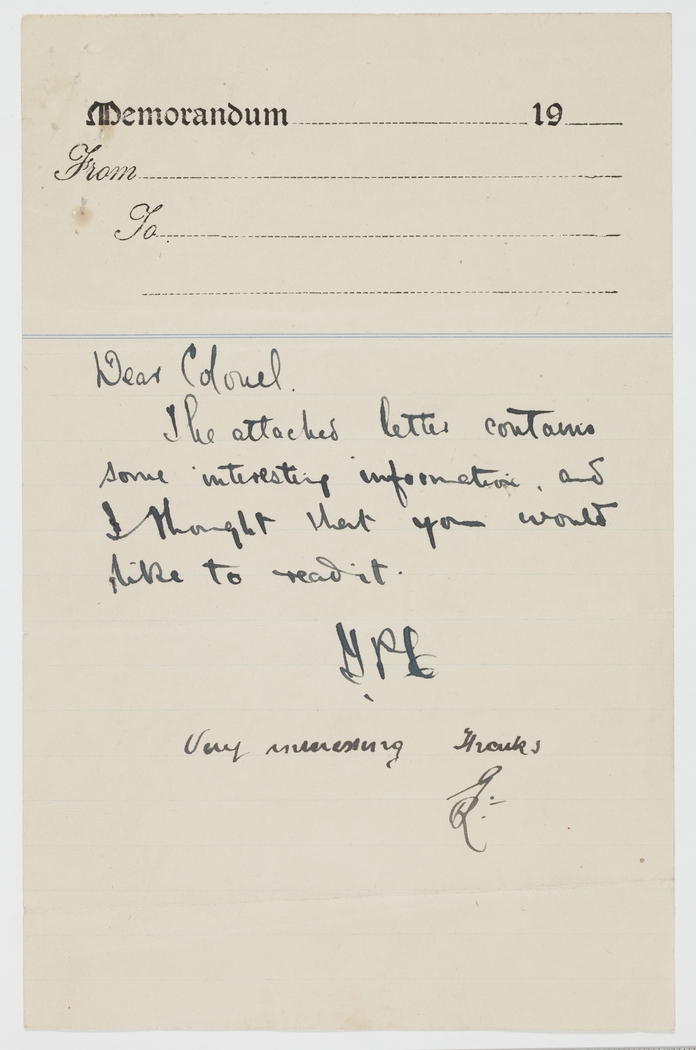 Memorandum 19
From
To
Dear Colonel.
The attached letter contains
some interesting information, and
I thought that you would
like to read it.
Very interesting Thanks